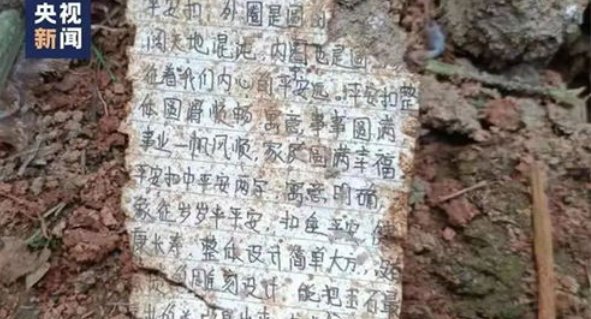 央视
新闻
平安扣，外圈是圆的
天地混沌，内圈也是圆
着我们内心的平安远。平安扣整
体圆滑顺畅，寓意事事圆满
事业一帆风顺，家庭圆满幸福
平安扣中平安两字，寓意明确，
象征岁岁平平安，扣住平安，健
康长寿。整体设计简单大方，没
雕刻设计，能把玉石最